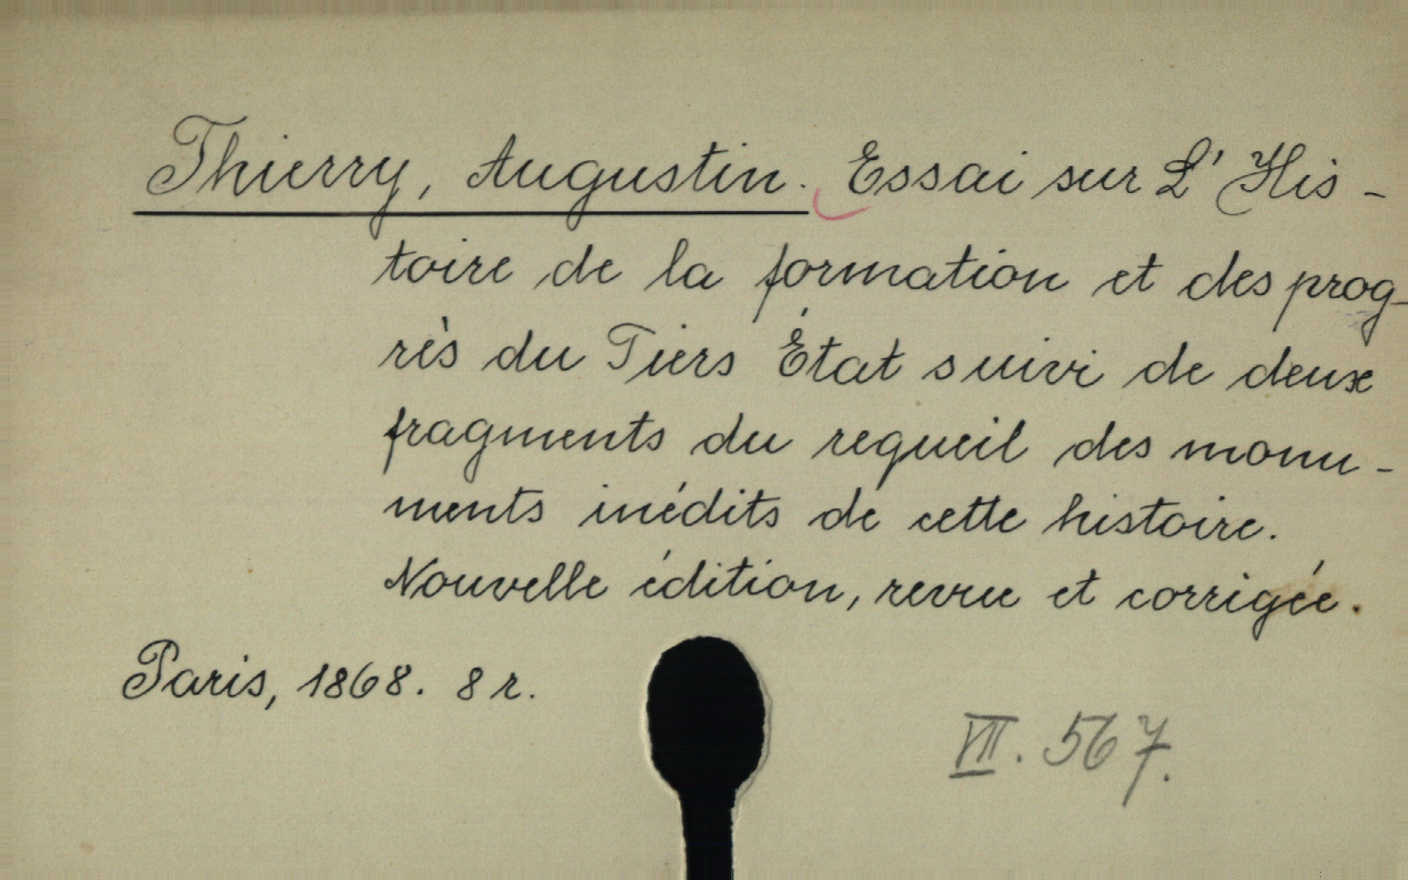 Thierry, Augustin. Essai sur L'His-
toire de la formation et des prog-
rès du Tiers État suivi de deux
fragments du requeil des monu-
ments inédits de cette histoire.
Nouvelle édition, revue et corrigée.
Paris, 1868. 8 r.
VII. 567.